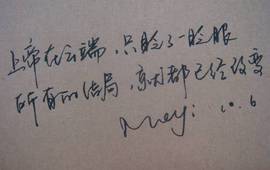 上帝在云端，只眨了一眨眼
所有的结局，原来都已经改变
10.6